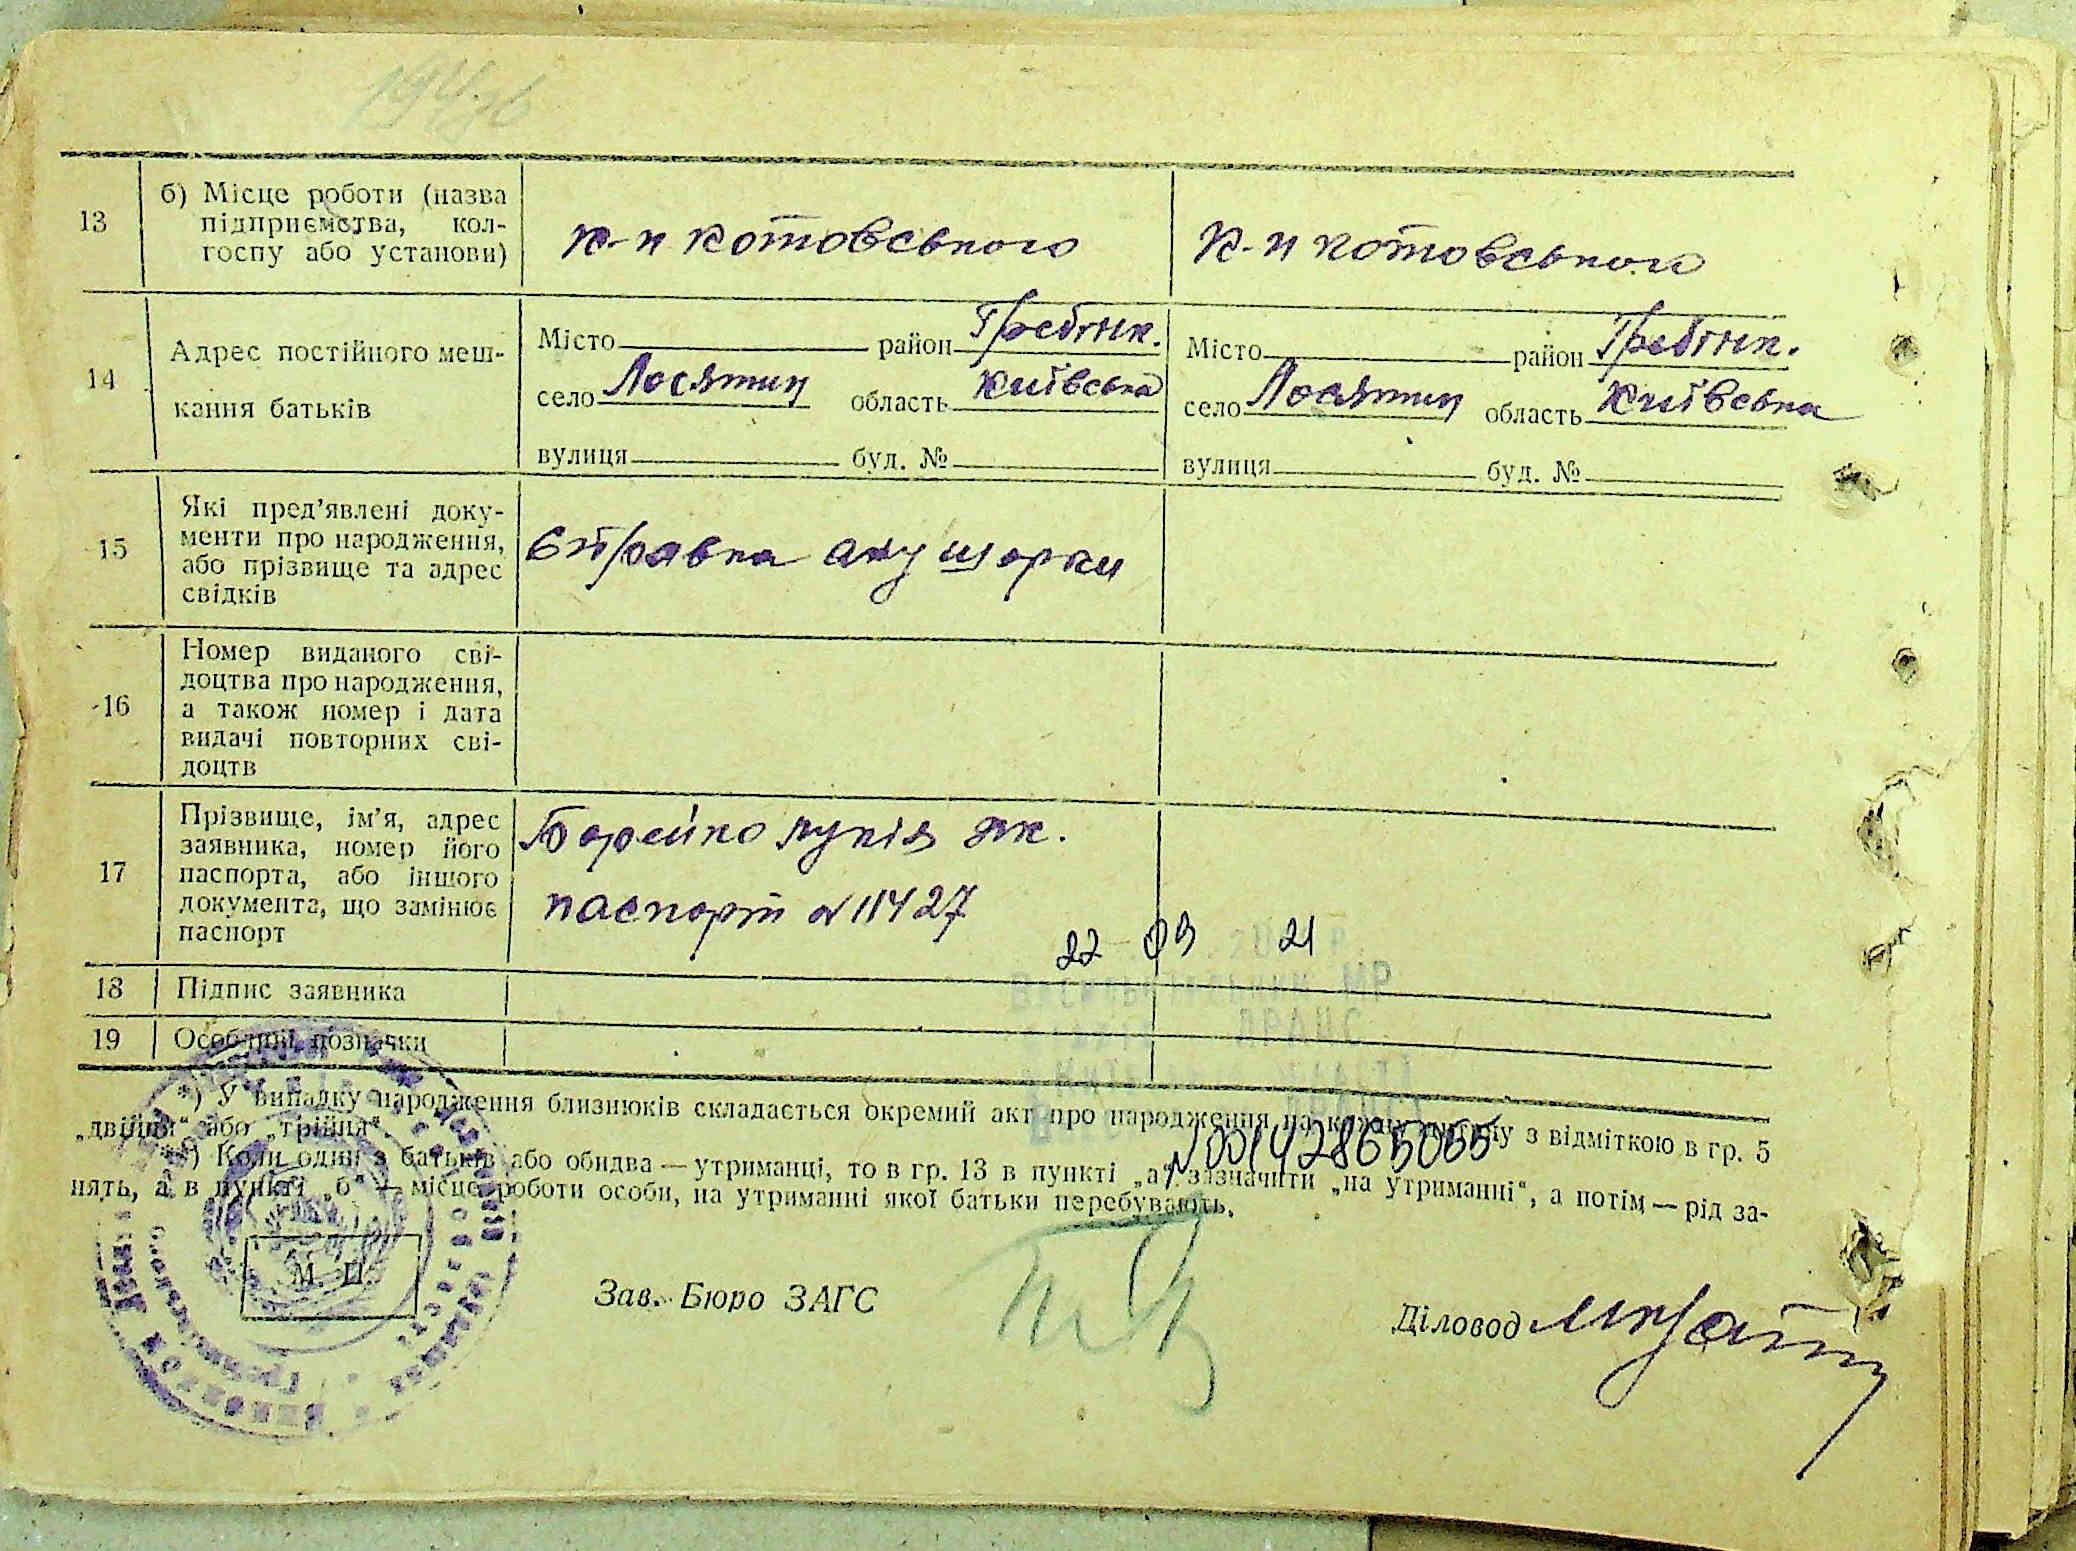 13
б) Місце роботи (назва
підприємства, кол-
госпу або установи)
к-п Котовського
к-п Котовського
14
Адрес постійного меш-
кання батьків
Місто район Гребінк.
село Лосятин область Київська
вулиця буд. №
Місто район Гребінк.
село Лосятин область Київська
вулиця буд. №
15
Які пред’явлені доку-
менти про народження,
або прізвище та адрес
свідків
Справка акушорки
16
Номер виданого сві-
доцтва про народження,
а також номер і дата
видачі повторних сві-
доцтв
17
Прізвище, ім’я, адрес
заявника, номер його
паспорта, або іншого
документа, що замінює
паспорт
Борейко
паспорт №11427
22 09 21
18
Підпис заявника
19
Особливі позначки
*) У випадку народження близнюків складається окремий акт про народження на кожну дитину з відміткою в гр. 5
„двійня“ або „трійня“.
**) Коли один з батьків або обидва — утриманці, то в гр. 13 в пункті „а“ зазначити „на утриманні“, а потім — рід за-
нять, а в пункті „б“ — місце роботи особи, на утриманні якої батьки перебувають.
№00142865055
М. П.
Зав. Бюро ЗАГС
Діловод